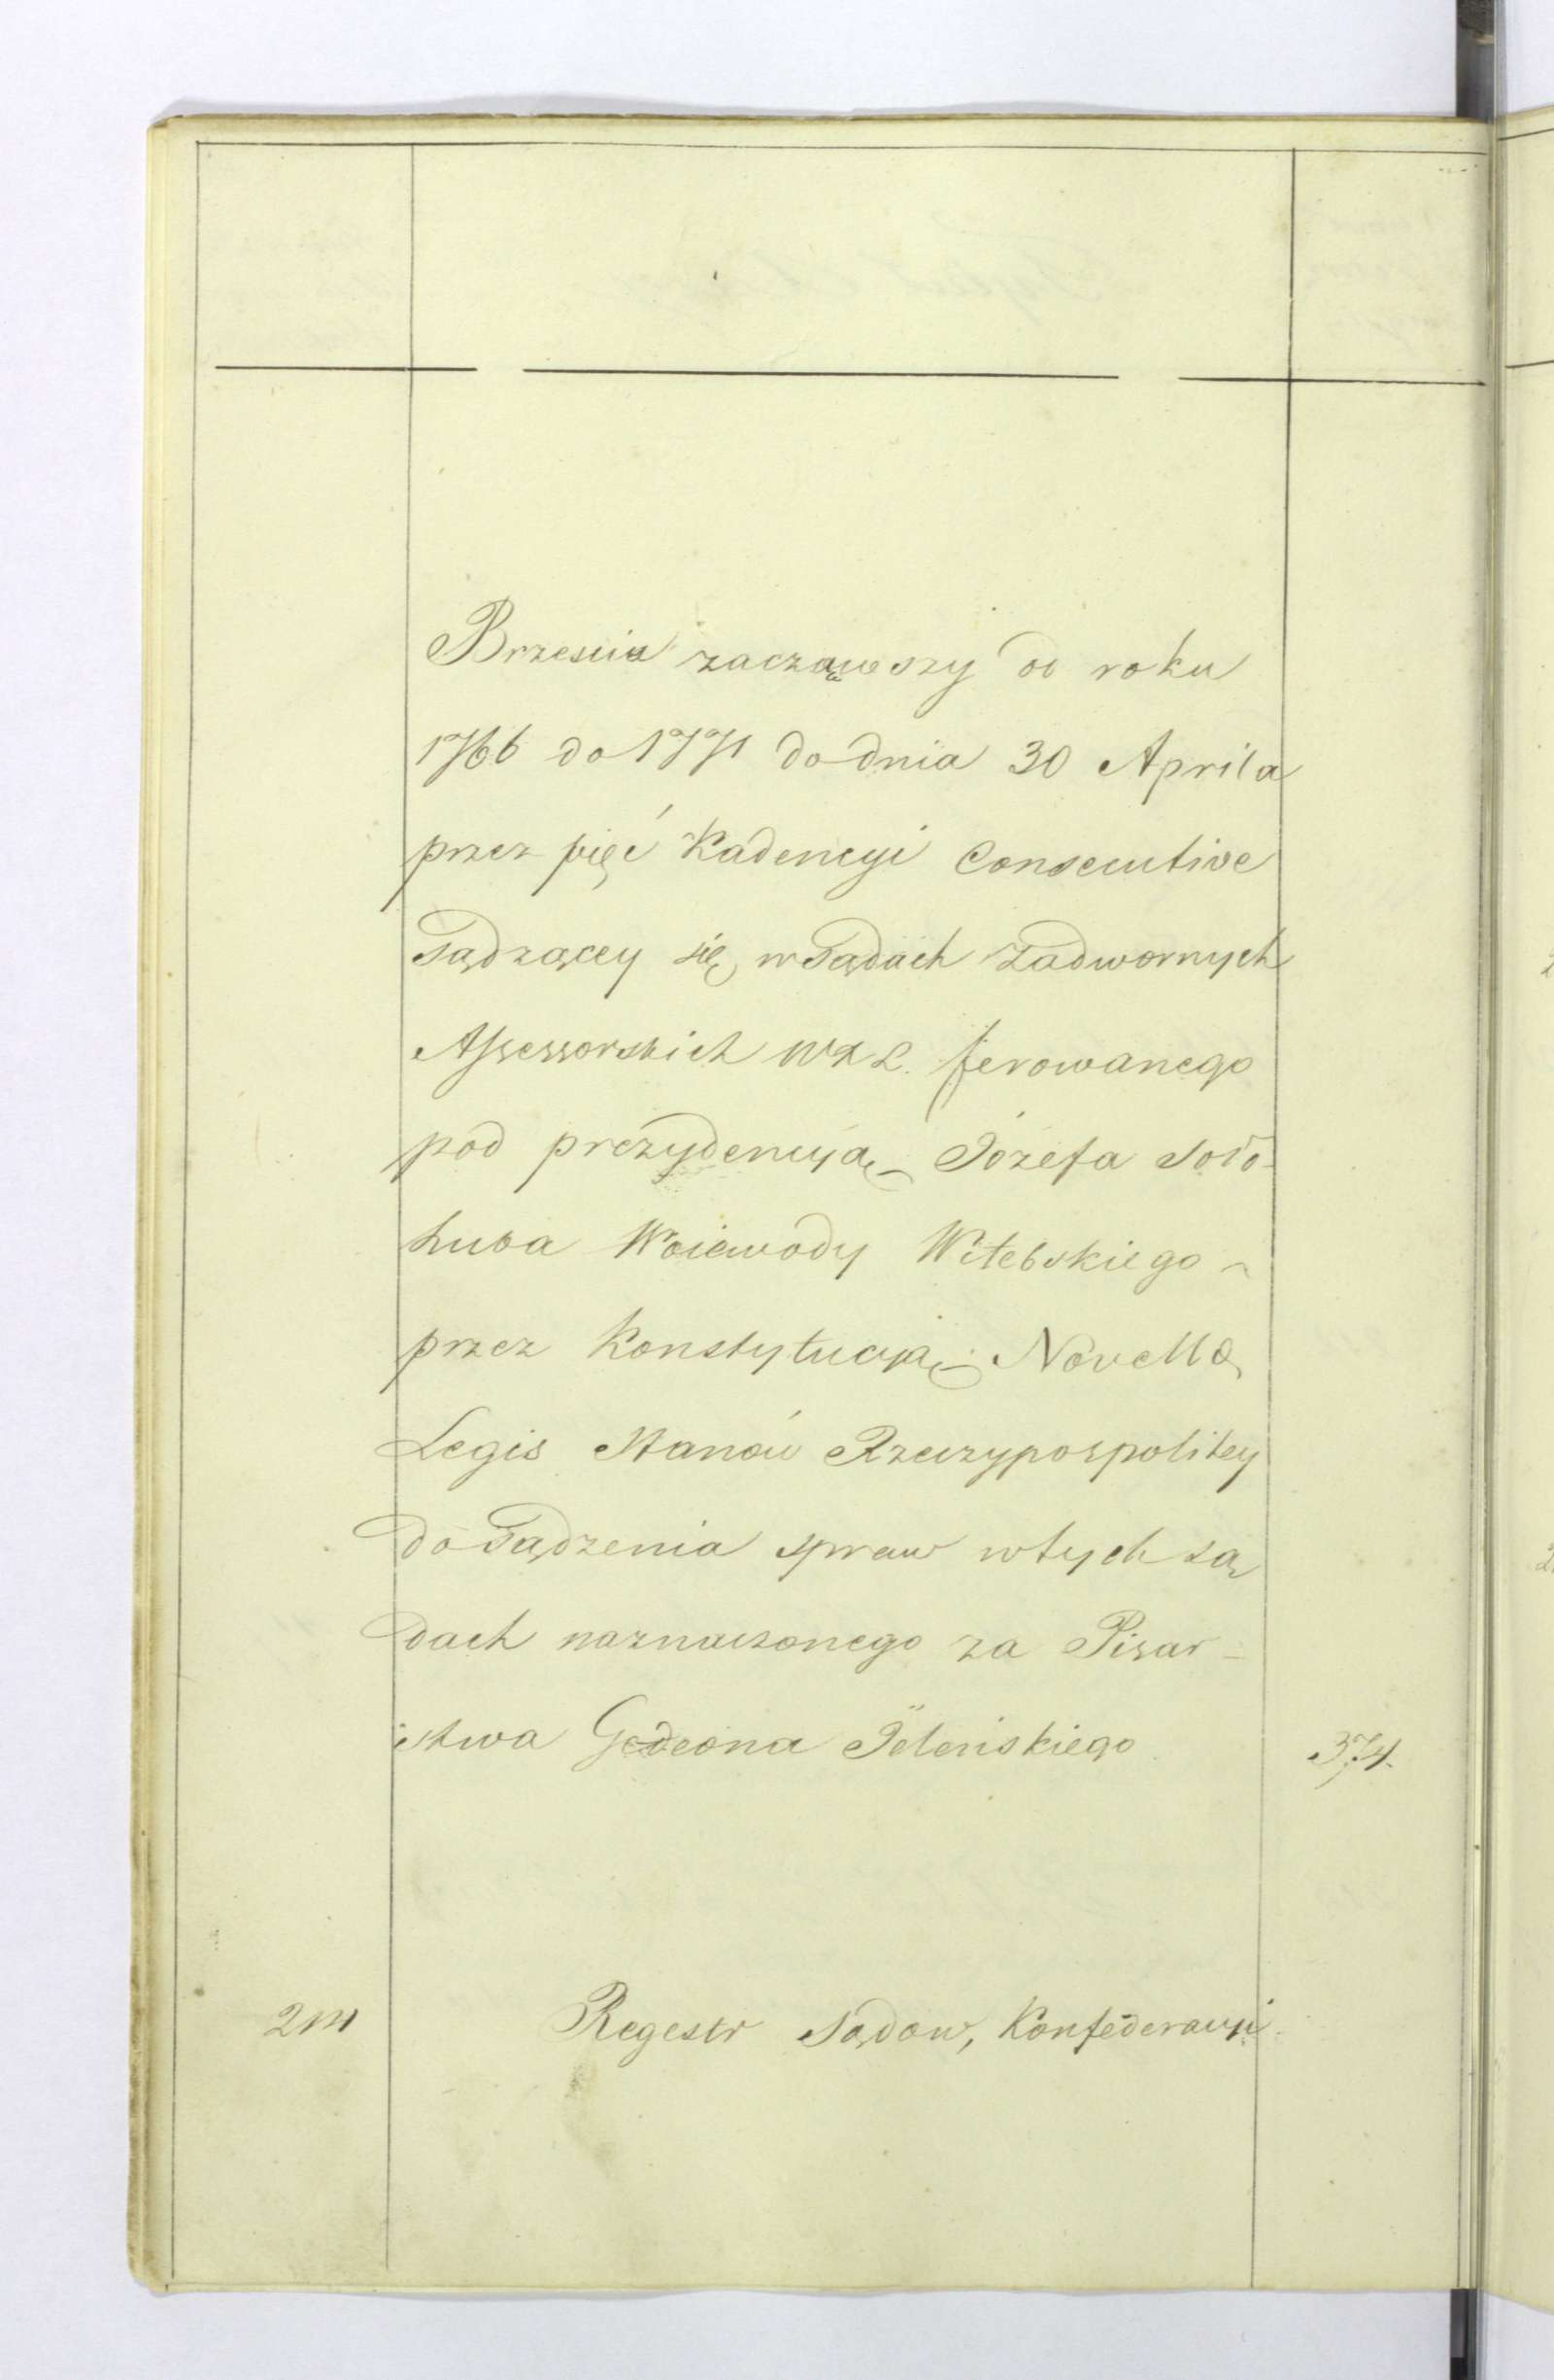 Brzescia zacząwszy od roku
1766 do 1771 do dnia 30 Aprila
przez pięć Kadencyi Consecutive
Sądzącey się w Sądach Zadwornych
Assessorskich WXL. ferowanego
pod prezydencyą Józefa Soło-
huba Woiewody Witebskiego
przez Konstytucyą Novella
Legis Stanów Rzeczypospolitey
do Sądzenia spraw w tych są
dach naznaczonego za Pisar-
stwa Gedeona Jeleńskiego 374.
Regestr Sądow, Konfederacyi